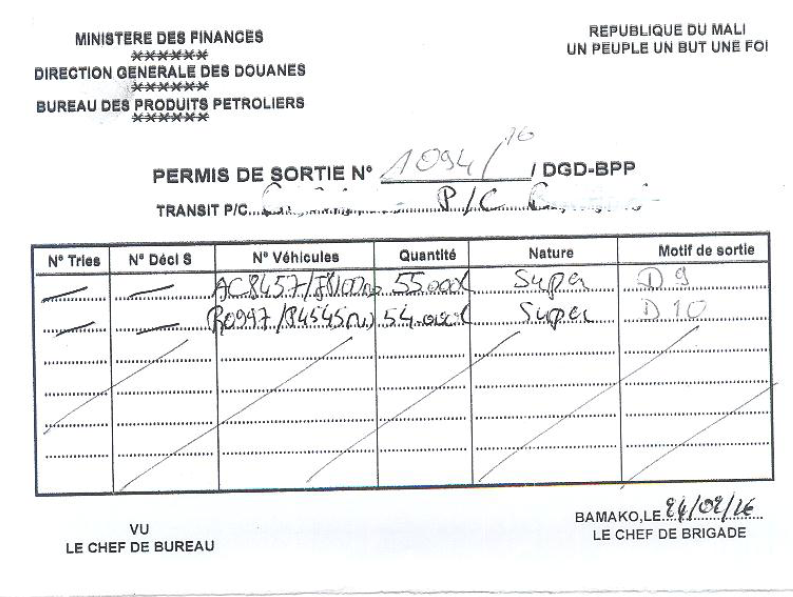 MINISTERE DES FINANCES
******
DIRECTION GENERALE DES DOUANES
******
BUREAU DES PRODUITS PETROLIERS
******
REPUBLIQUE DU MALI
UN PEUPLE UN BUT UNE FOI
PERMIS DE SORTIE N° 1094/16 / DGD-BPP
TRANSIT P/C P/C
N° Tries N° Décl S N° Véhicules Quantité Nature Motif de sortie
— — 55000L Super D 9
— — 54.000L Super D 10
VU
LE CHEF DE BUREAU
BAMAKO,LE
LE CHEF DE BRIGADE